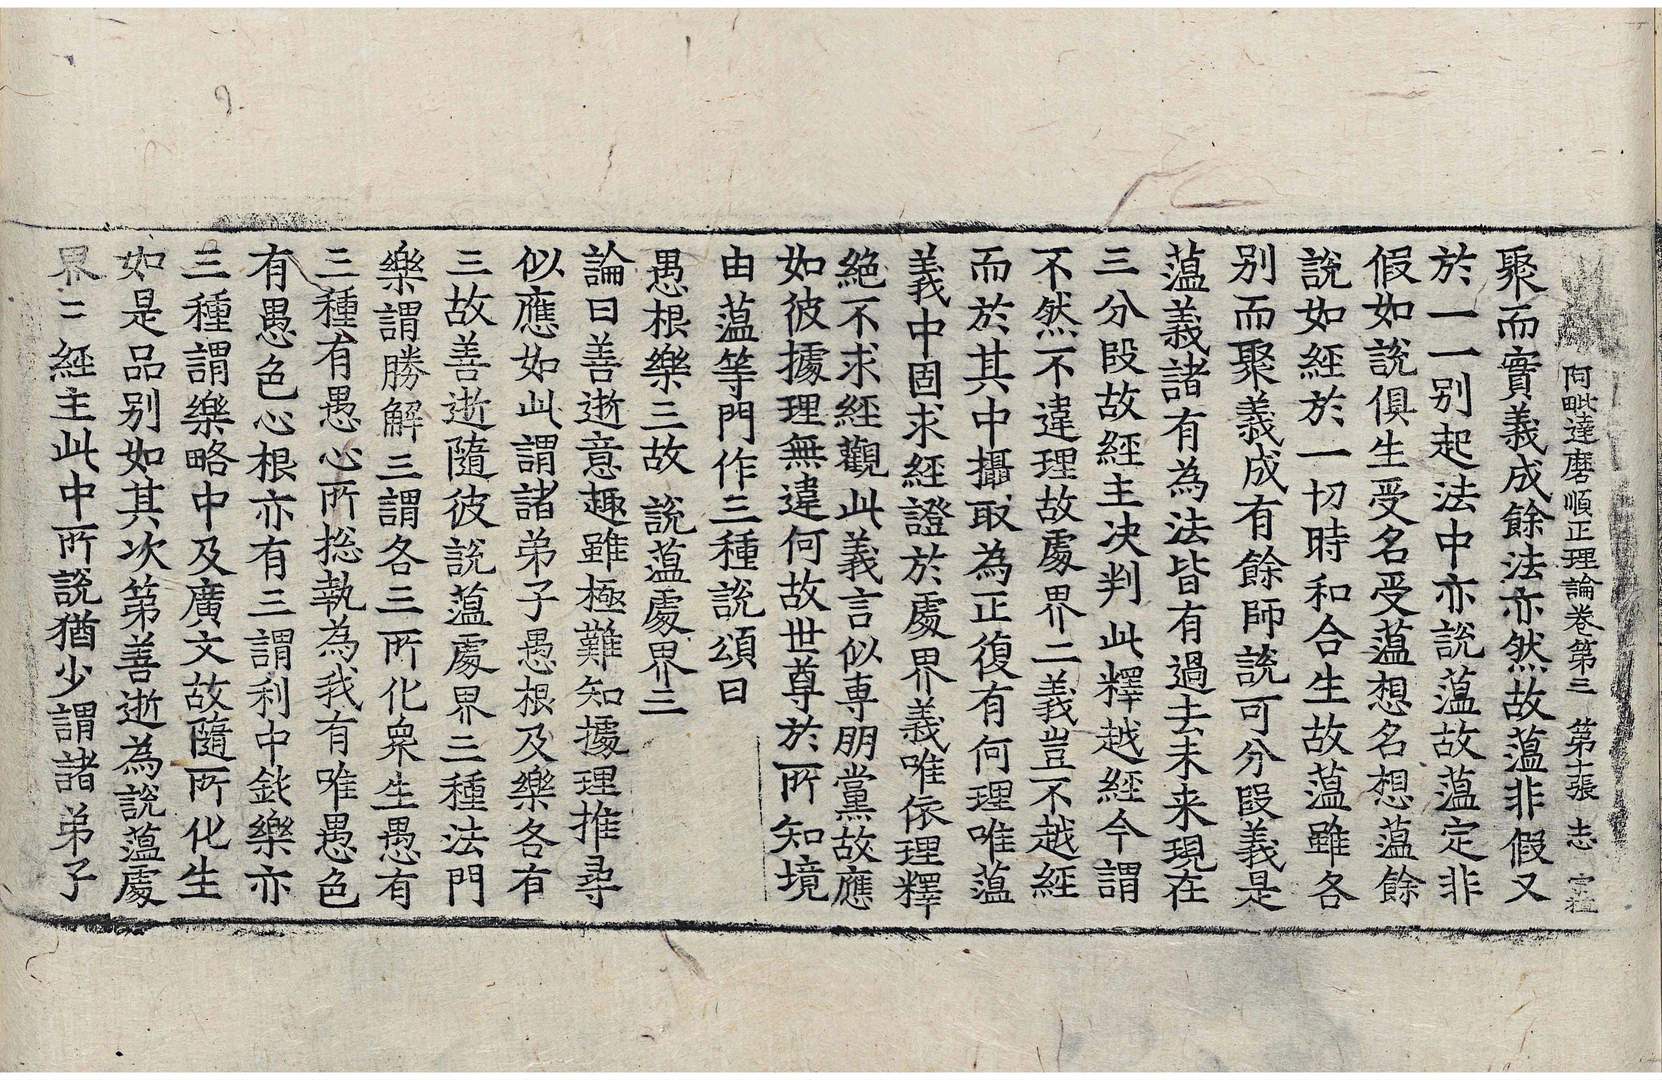 阿毗達磨順正理論卷第三　第十張　志
聚而實義成餘法亦然故蕰非假又
於一一別起法中亦說蕰故蕰定非
假如說俱生受名受蕰想名想蕰餘
說如經於一切時和合生故蕰雖各
別而聚義成有餘師說可分段義是
蕰義諸有為法皆有過去未来現在
三分段故經主决判此釋越經今謂
不然不違理故處界二義豈不越經
而於其中攝取為正復有何理唯蕰
義中固求經證於處界義唯依理釋
絕不求經觀此義言似専朋黨故應
如彼據理無違何故世尊於所知境
由蕰等門作三種說頌曰
愚根樂三故　說蕰處界三
論曰善逝意趣雖極難知據理推尋
似應如此謂諸弟子愚根及樂各有
三故善逝隨彼說蕰處界三種法門
樂謂勝解三謂各三所化衆生愚有
三種有愚心所捴執為我有唯愚色
有愚色心根亦有三謂利中鈍樂亦
三種謂樂略中及廣文故隨所化生
如是品別如其次第善逝為說蕰處
界三經主此中所說猶少謂諸弟子